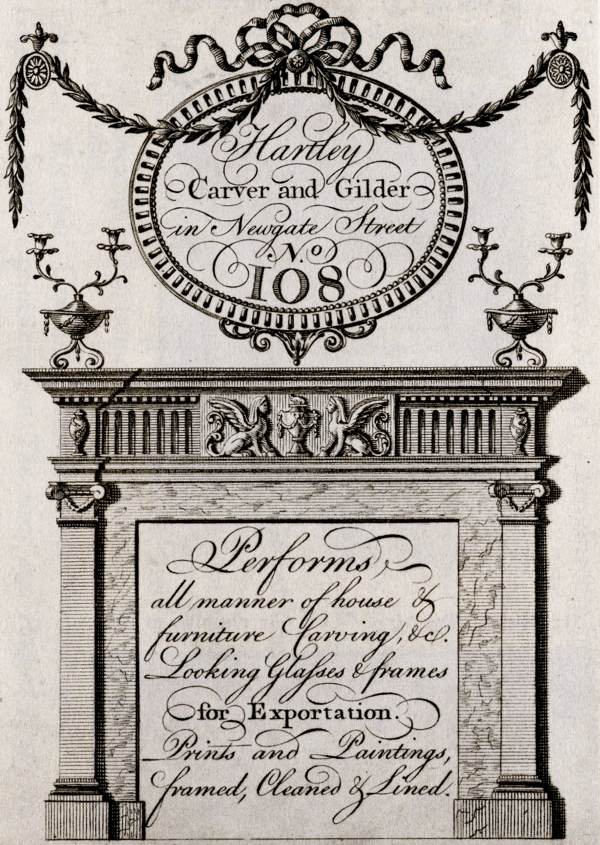 Hartley
Carver and Gilder
in Newgate Street
N.o
108
Performs
all manner of house &
furniture Carving, &c.
Looking Glaſses & frames
for Exportation.
Prints and Paintings,
framed, Cleaned & Lined.